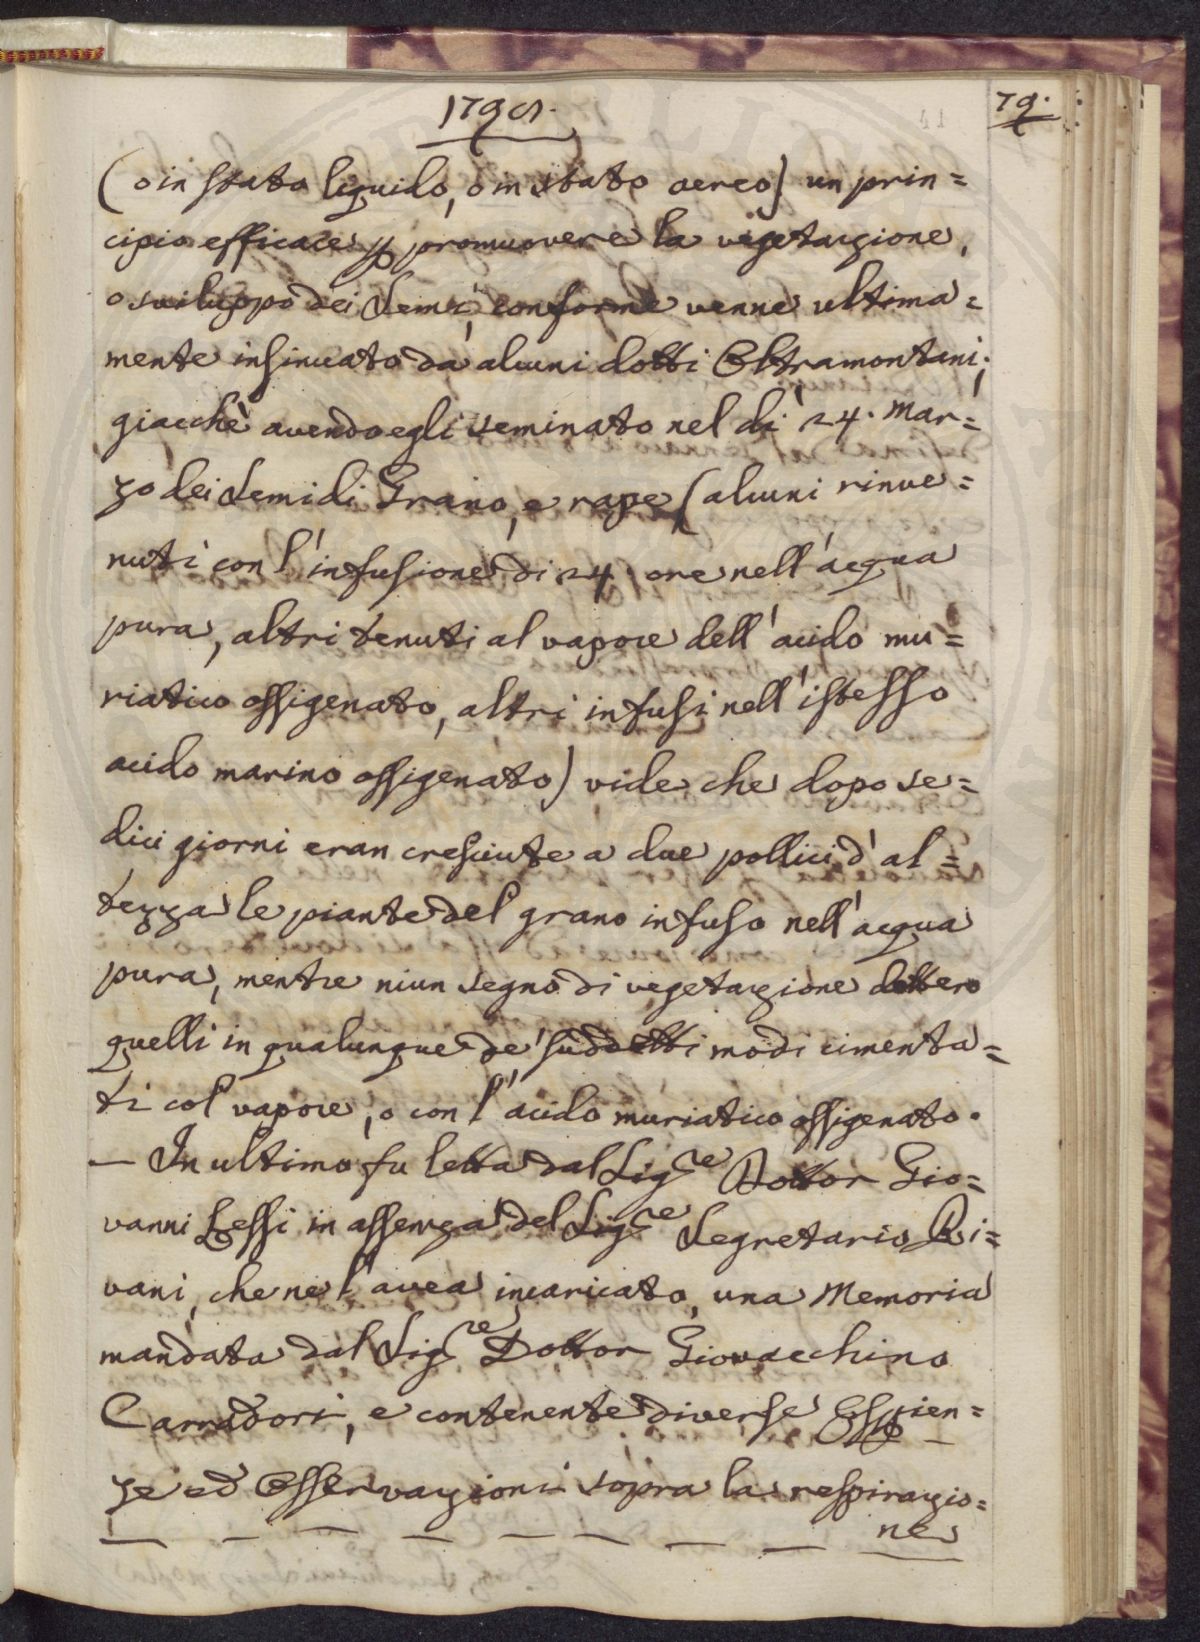 1798.
79.
(o in stato liquido, o in stato aereo) un prin=
cipio efficace p promuovere la vegetazione,
o sviluppo dei Semi, conforme venne ultima=
mente insinuato da alcuni dotti Oltramontani;
giacchè avendo egli seminato nel dì 24. Mar=
zo dei Semi di Grano, e rape (alcuni rinve=
nuti con l'infusione di 24. ore nell'acqua
pura, altri tenuti al vapore dell'acido mu=
riatico ossigenato, altri infusi nell'istesso
acido marino ossigenato) vide che dopo se=
dici giorni eran cresciute a due pollici d'al=
tezza le piante del grano infuso nell'acqua
pura, mentre niun segno di vegetazione dettero
quelli in qualunque de' suddetti modi cimenta=
ti col vapore, o con l'acido muriatico ossigenato.
— In ultimo fu letta dal Sigre Dottor Gio=
vanni Lessi in assenza del Sigre Segretario Ri=
vani, che ne l'avea incaricato, una Memoria
mandata dal Sigre Dottor Giovacchino
Carradori, e contenente diverse Esperien=
ze ed Osservazioni sopra la respirazio=
ne